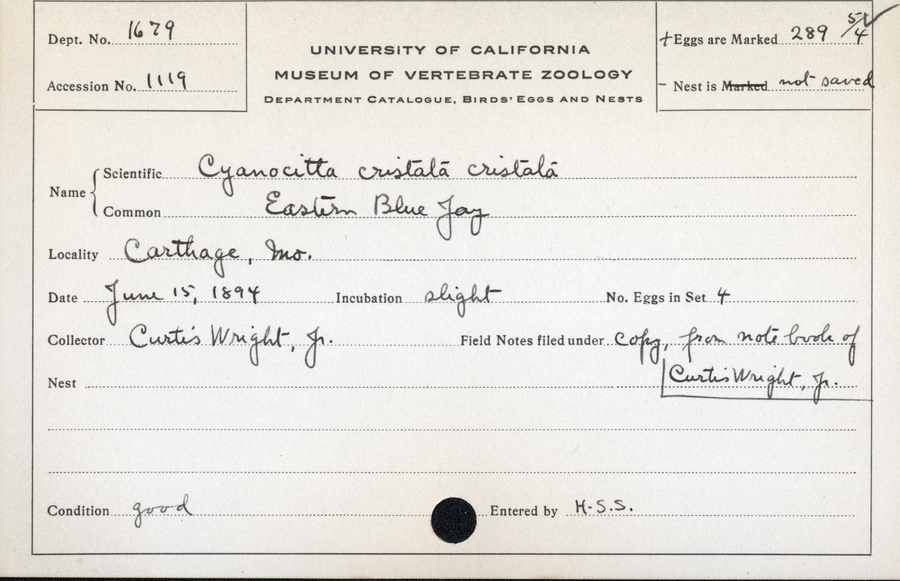 Dept. No. 1679
Accession No. 1119
UNIVERSITY OF CALIFORNIA
MUSEUM OF VERTEBRATE ZOOLOGY
DEPARTMENT CATALOGUE, BIRDS' EGGS AND NESTS
+Eggs are Marked 289 5/4
– Nest is Marked not saved
Name
Scientific Cyanocitta cristata cristata
Common Eastern Blue Jay
Locality Carthage, Mo.
Date June 15, 1894 Incubation slight No. Eggs in Set 4
Collector Curtis Wright, Jr. Field Notes filed under copy, from note book of
Nest Curtis Wright, Jr.
Condition good Entered by H.S.S.